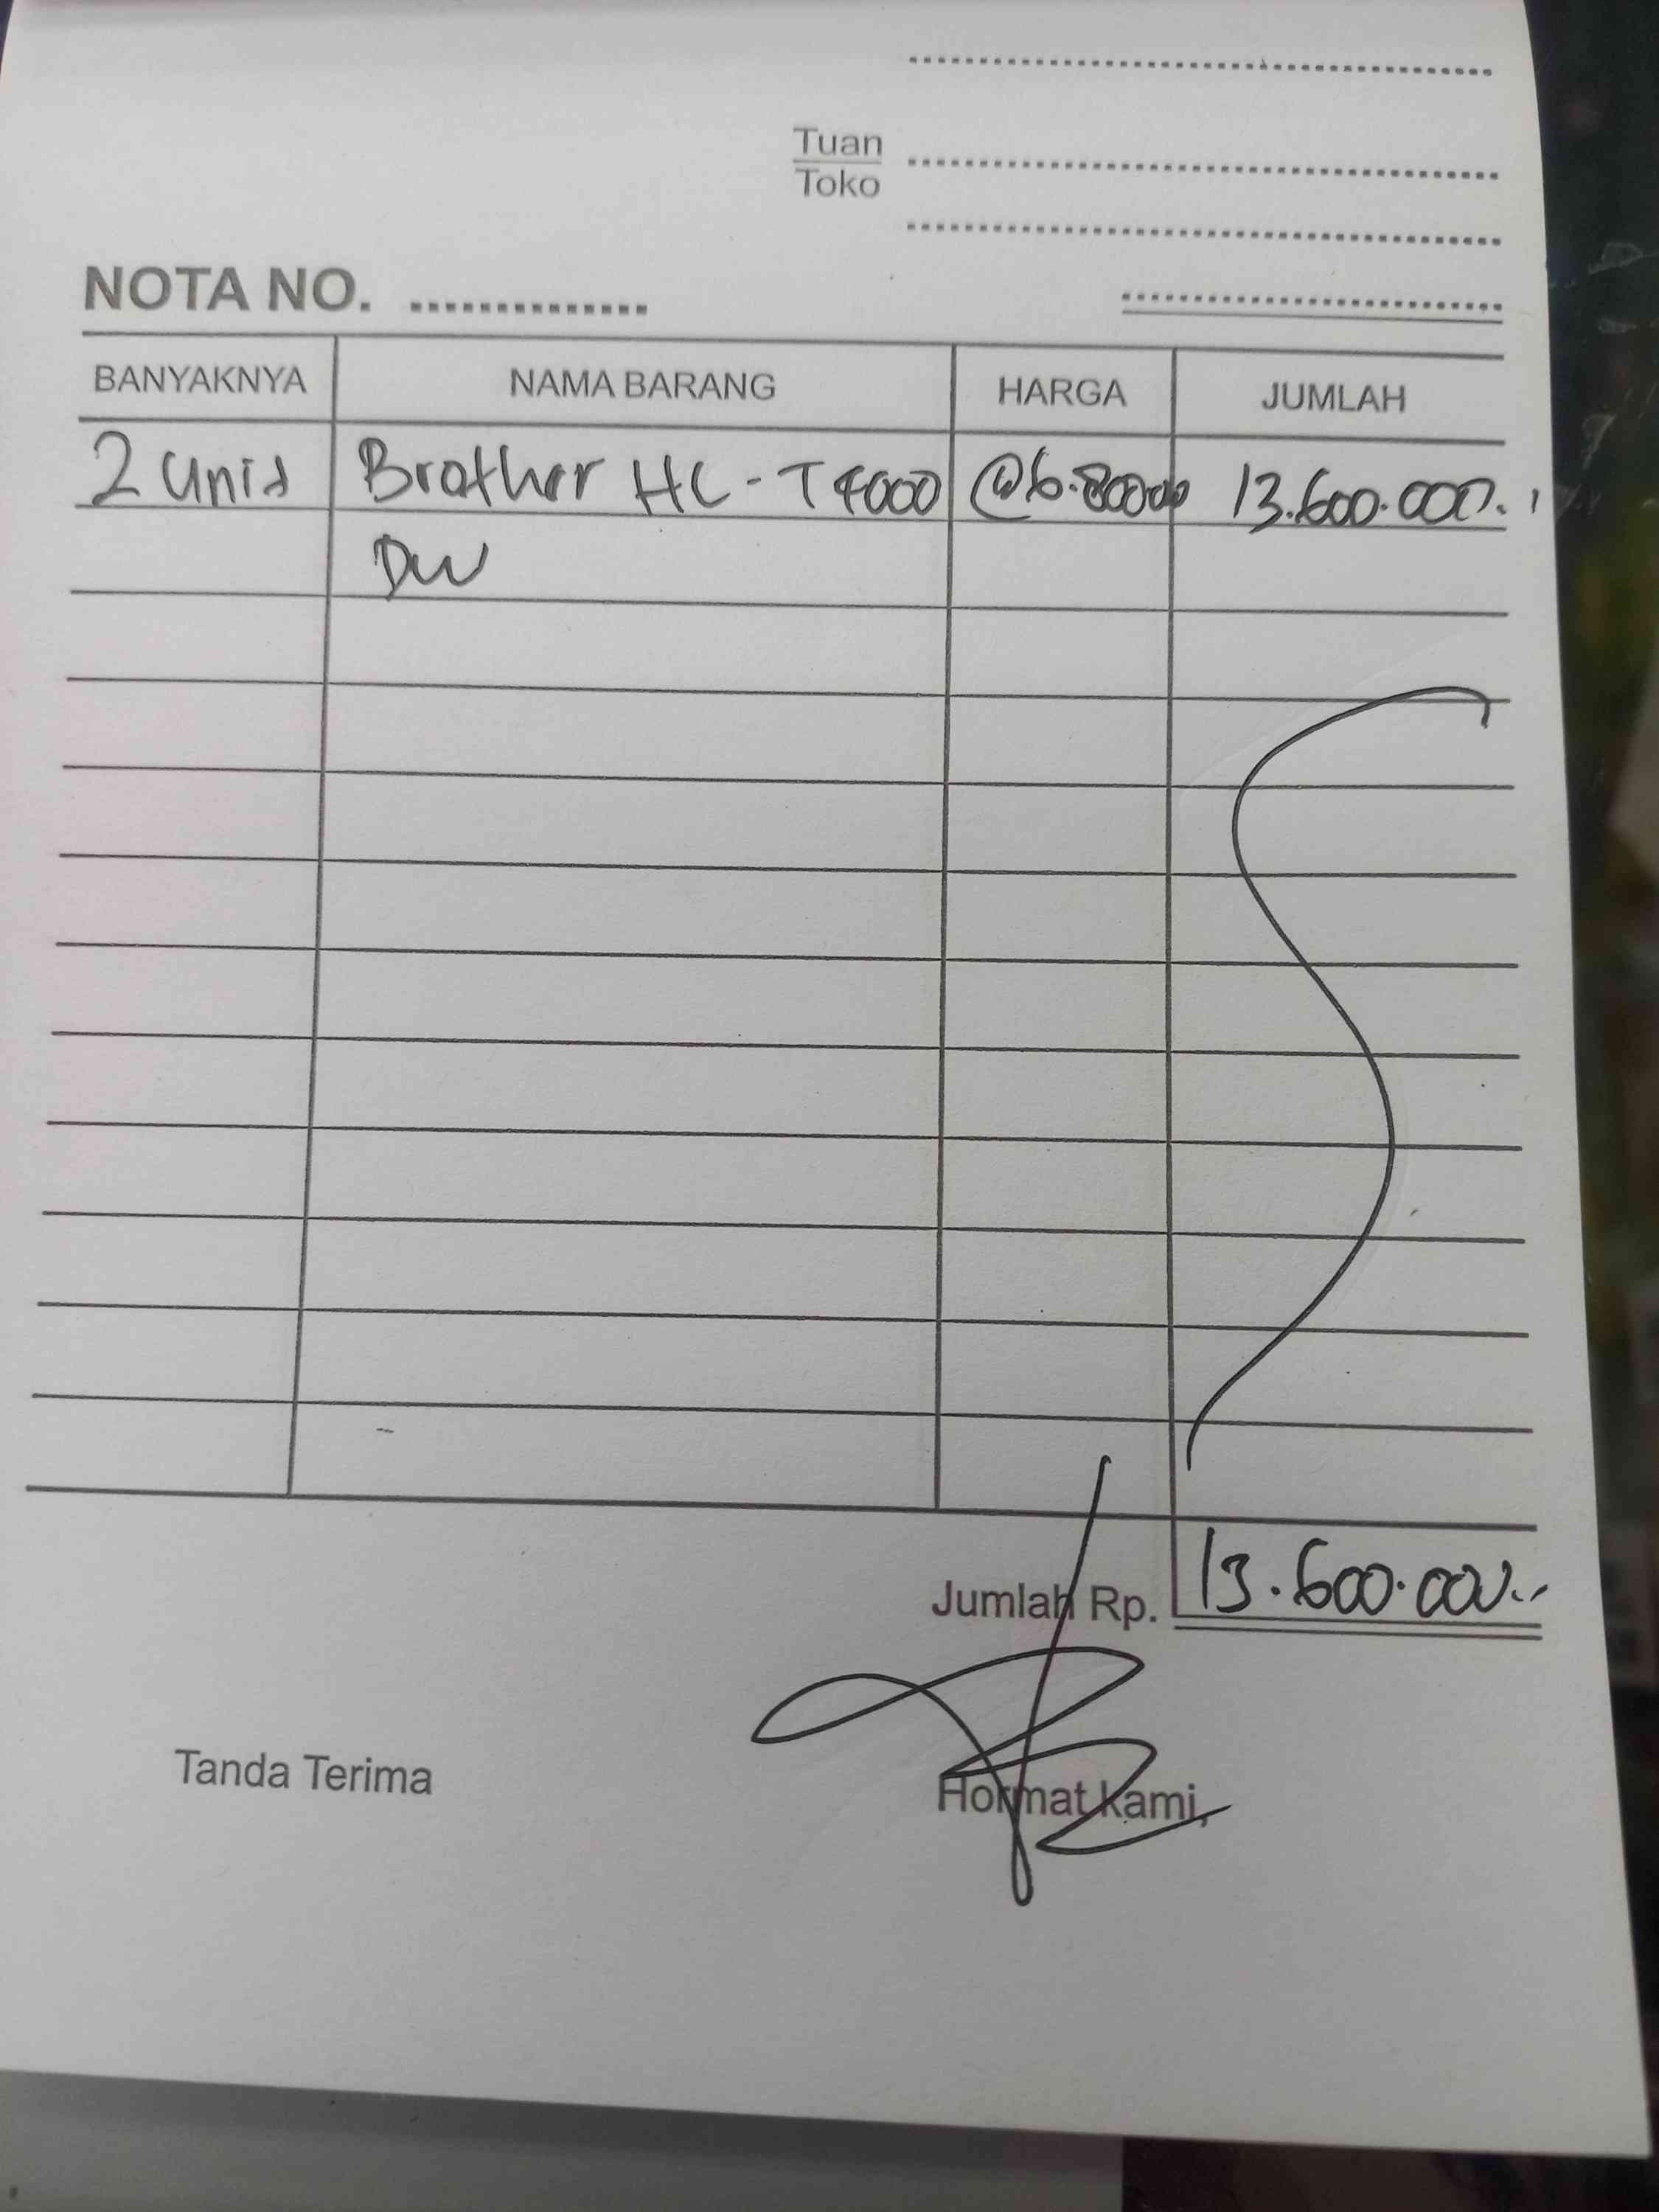 Tuan
Toko
NOTA NO. ..............
BANYAKNYA NAMA BARANG HARGA JUMLAH
2 Unit Brother HL-T4000 @6.800000 13.600.000.,
DW
Jumlah Rp. 13.600.000.,-
Tanda Terima Hormat kami,